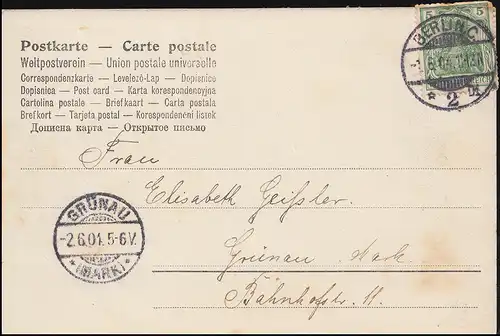 Postkarte — Carte postale
Weltpostverein — Union postale universelle
Correspondenzkarte — Levelező-Lap — Dopisnice
Dopisnica — Post card — Karta korespondencyjna
Cartolina postale — Briefkaart — Carta postala
Brefkort — Tarjeta postal — Korespondenčni listek
Дописна карта — Открытое письмо
5 5
BERLIN, C.
* 2
Frau
Elisabeth Geißler.
GRÜNAU
-2.6.01.5-6V.
* (MARK) *
Grünau Mark
Bahnhofstr. 11.